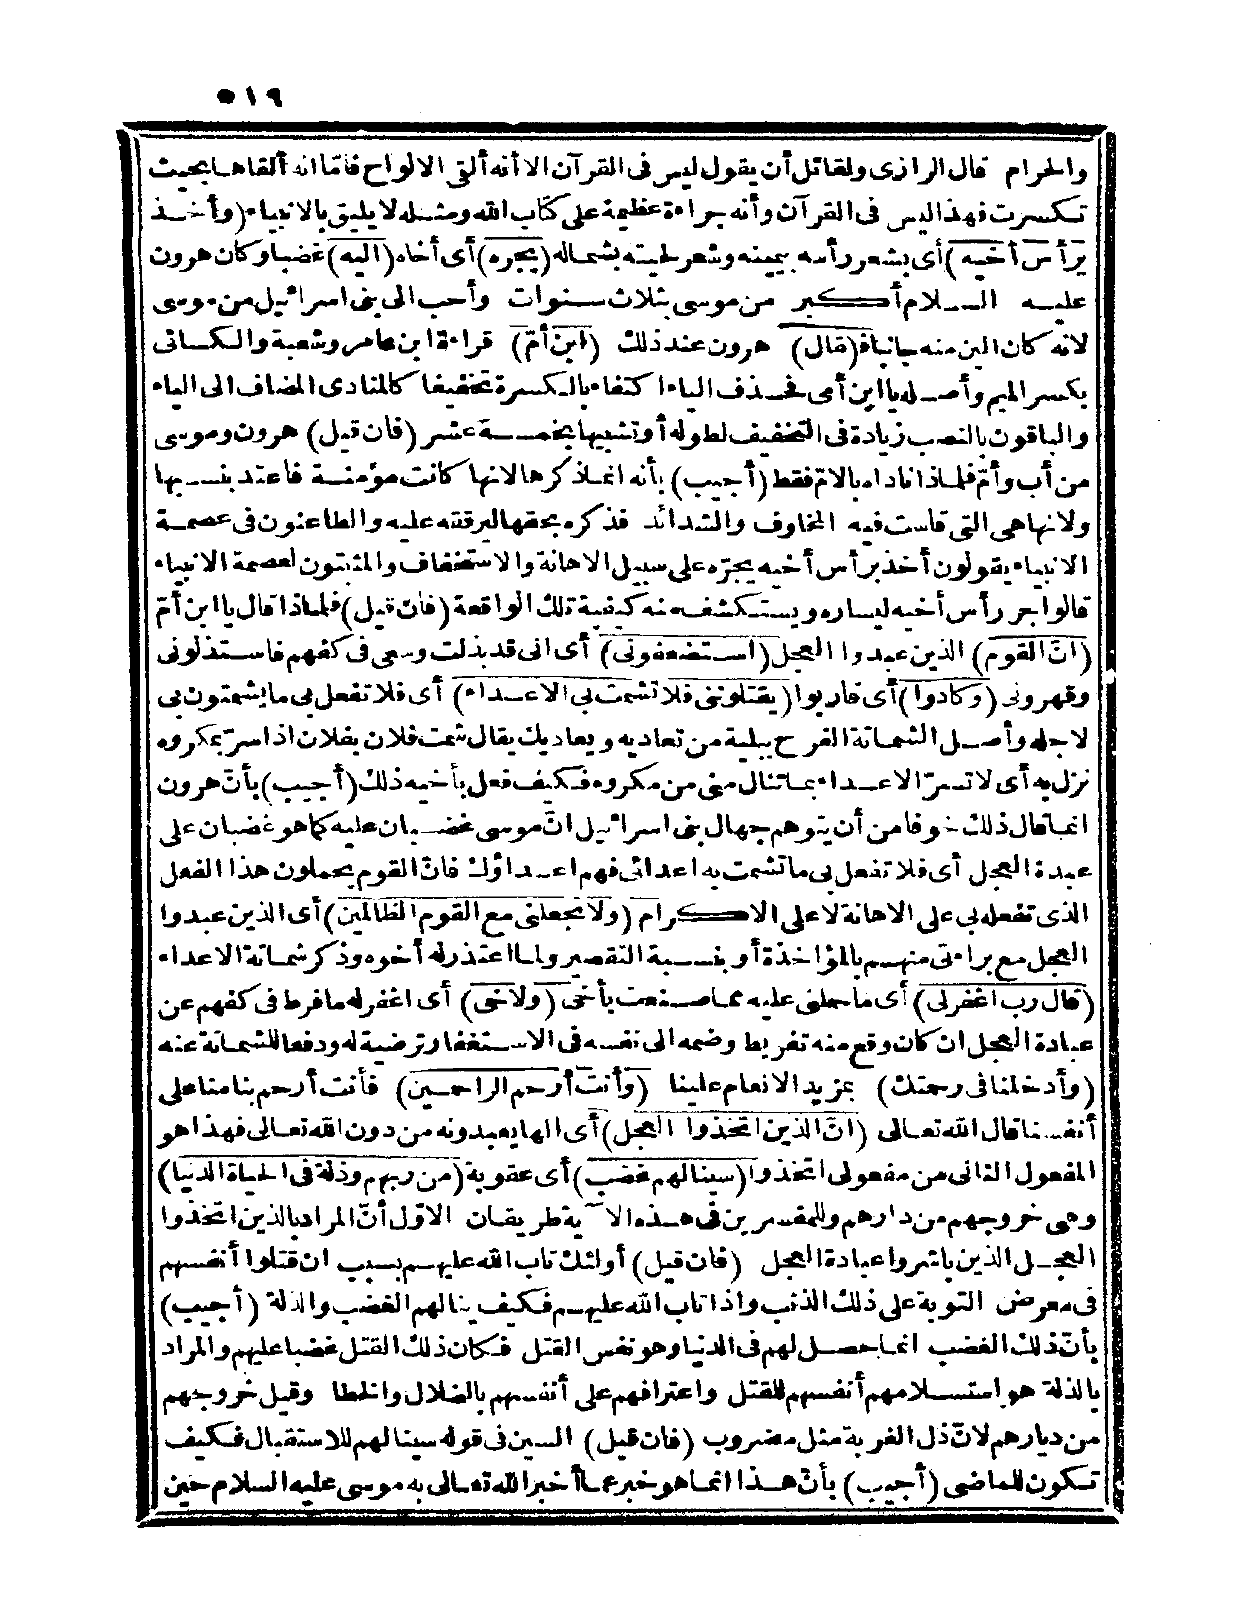 ٥١٩
والحرام قال الرازى ولقائل أن يقول ليس فى القرآن الا أنه ألقى الالواح فاما انه ألقاها بحيث
تكسرت فهذا ليس فى القرآن وأنه جراءة عظيمة على كتاب الله ومثله لا يليق بالانبياء (وأخذ
برأس أخيه) أى بشعر رأسه بيمينه وشعر لحيته بشماله (يجره) أى أخاه (اليه) غضبا وكان هرون
عليه السلام أكبر من موسى بثلاث سنوات وأحب الى بنى اسرائيل من موسى
لانه كان ألين منه جانبا (قال) هرون عند ذلك (ابن أمّ) قراءة ابن عامر وشعبة والكسائى
بكسر الميم وأصله يا ابن أمى فحذف الياء اكتفاء بالكسرة تخفيفا كالمنادى المضاف الى الياء
والباقون بالنصب زيادة فى التخفيف لطوله أو تشبيها بخمسة عشر (فان قيل) هرون وموسى
من أب وأمّ فلماذا ناداه بالامّ فقط (أجيب) بأنه انما ذكرها لانها كانت مؤمنة فاعتد بنسبها
ولانها هى التى قاست فيه المخاوف والشدائد فذكره بحقها ليرققه عليه والطاعنون فى عصمة
الانبياء يقولون أخذ برأس أخيه يجرّه على سبيل الاهانة والاستخفاف والمثبتون لعصمة الانبياء
قالوا جر رأس أخيه ليساره ويستكشف منه كيفية تلك الواقعة (فان قيل) فلماذا قال يا ابن أمّ
(انّ القوم) الذين عبدوا العجل (استضعفونى) أى انى قد بذلت وسعى فى كفهم فاستذلونى
وقهرونى (وكادوا) أى قاربوا (يقتلوننى فلا تشمت بى الاعداء) أى فلا تفعل بى ما يشمتون بى
لاجله وأصل الشماتة الفرح ببلية من تعاديه ويعاديك يقال شمت فلان بفلان اذا سرّ بمكروه
نزل به أى لا تسرّ الاعداء بما تنال منى من مكروه فكيف فعل بأخيه ذلك (أجيب) بأنّ هرون
انما قال ذلك خوفا من أن يتوهم جهال بنى اسرائيل انّ موسى غضبان عليه كما هو غضبان على
عبدة العجل أى فلا تفعل بى ما تشمت به اعدائى فهم اعداؤك فانّ القوم يحملون هذا الفعل
الذى تفعله بى على الاهانة لا على الاكرام (ولا تجعلنى مع القوم الظالمين) أى الذين عبدوا
العجل مع براءتى منهم بالمؤاخذة أو بنسبة التقصير ولما اعتذر له أخوه وذكر شماتة الاعداء
(قال رب اغفر لى) أى ما حملنى عليه مما صنعت بأخى (ولاخى) أى اغفر له ما فرط فى كفهم عن
عبادة العجل ان كان وقع منه تفريط وضمه الى نفسه فى الاستغفار ترضية له ودفعا للشماتة عنه
(وأدخلنا فى رحمتك) بمزيد الانعام علينا (وأنت أرحم الراحمين) فأنت أرحم بنا منا على
أنفسنا قال الله تعالى (انّ الذين اتخذوا العجل) أى الها يعبدونه من دون الله تعالى فهذا هو
المفعول الثانى من مفعولى اتخذوا (سينالهم غضب) أى عقوبة (من ربهم وذلة فى الحياة الدنيا)
وهى خروجهم من دارهم وللمفسرين فى هذه الآية طريقان الاوّل أنّ المراد بالذين اتخذوا
العجل الذين باشروا عبادة العجل (فان قيل) أولئك تاب الله عليهم بسبب ان قتلوا أنفسهم
فى معرض التوبة على ذلك الذنب واذا تاب الله عليهم فكيف ينالهم الغضب والذلة (أجيب)
بأنّ ذلك الغضب انما حصل لهم فى الدنيا وهو نفس القتل فكان ذلك القتل غضبا عليهم والمراد
بالذلة هو استسلامهم أنفسهم للقتل واعترافهم على أنفسهم بالضلال والخطا وقيل خروجهم
من ديارهم لانّ ذل الغربة مثل مضروب (فان قيل) السين فى قوله سينالهم للاستقبال فكيف
تكون للماضى (أجيب) بأنّ هذا انما هو خبر عما أخبر الله تعالى به موسى عليه السلام حين